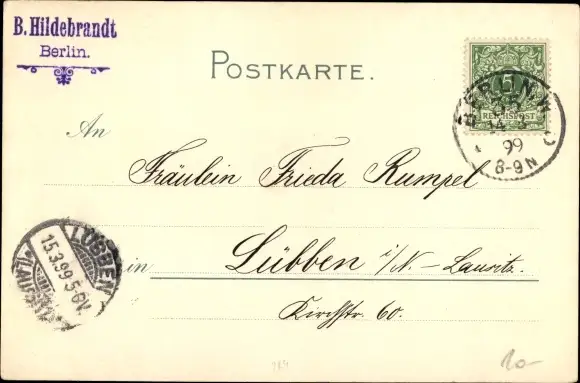 B. Hildebrandt
Berlin.
POSTKARTE.
5
REICHSPOST
BERLIN, W
35
14 3
99
8-9N
An
Fräulein Frieda Rumpel
in Lübben i/N.-Lausitz.
Kirchstr. 60.
LÜBBEN
15.3.99.5-6V.
10-